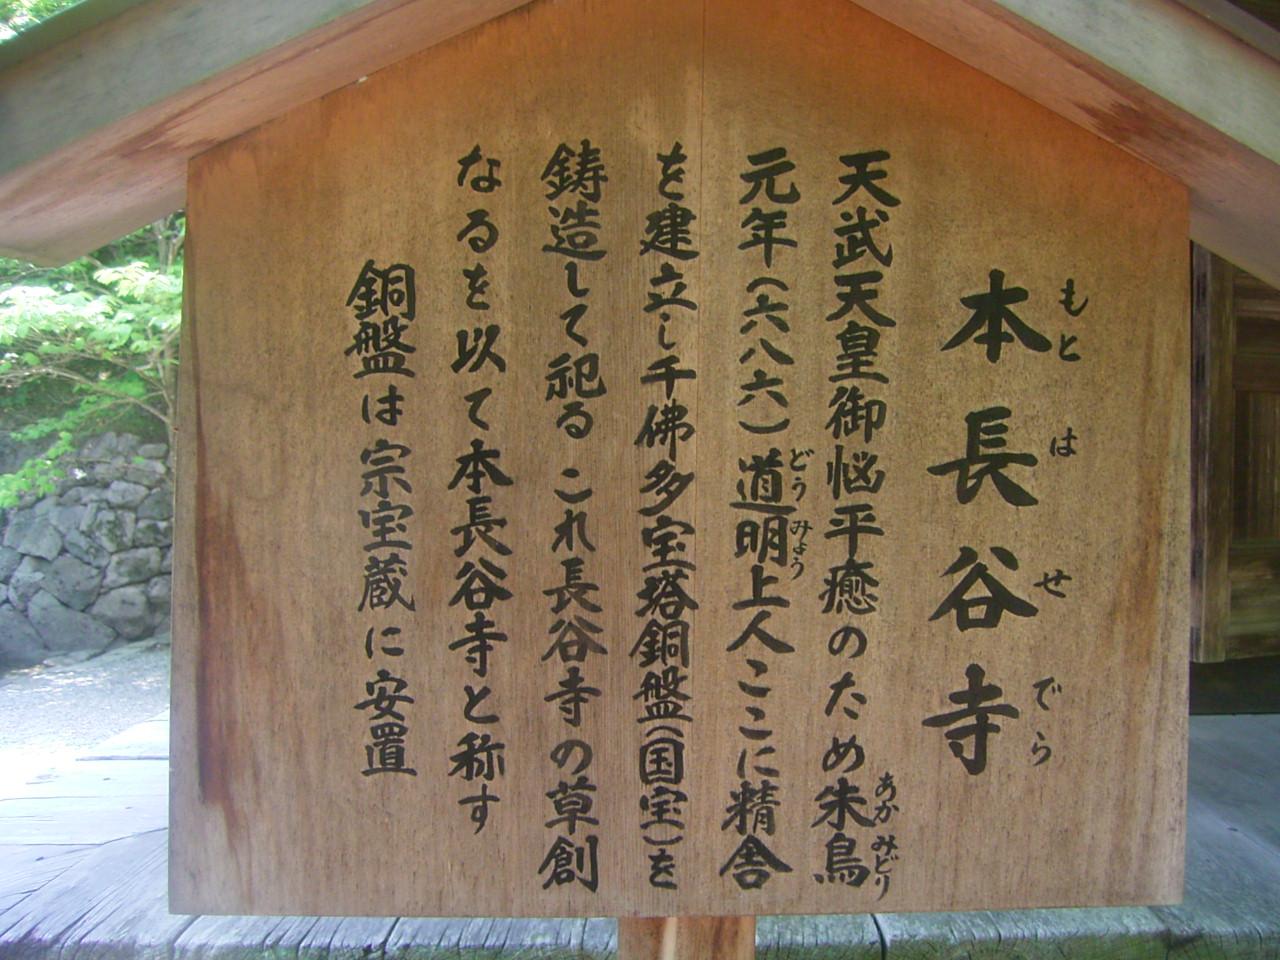 本長谷寺
もとはせでら
天武天皇御悩平癒のため朱鳥
あかみどり
元年(六八六)道明上人ここに精舎
どうみよう
を建立し千佛多宝塔銅盤(国宝)を
鋳造して祀る これ長谷寺の草創
なるを以て本長谷寺と称す
銅盤は宗宝蔵に安置